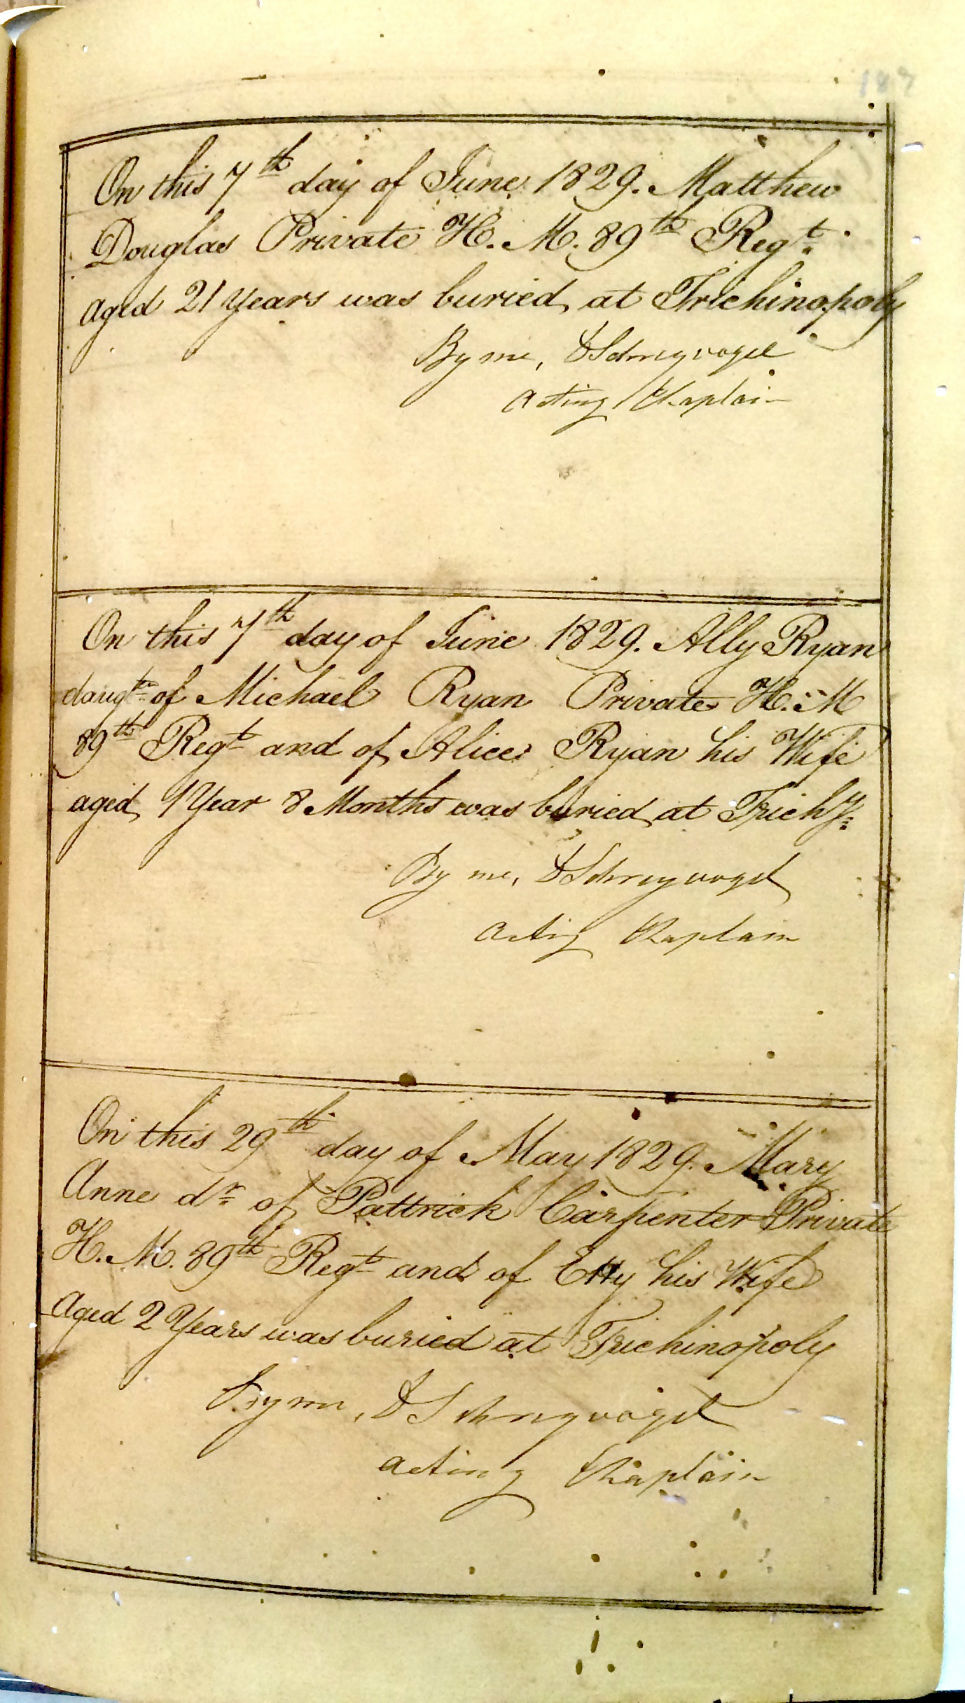 On this 7th day of June 1829. Matthew
Douglas Private H. M. 89th Regt.
aged 21 Years was buried at Trichinopoly
By me, D Schreyvogel
Acting Chaplain
On this 7th day of June 1829. Ally Ryan
daugtr of Michael Ryan Private H. M
89th Regt and of Alice Ryan his Wife
aged 1 Year 8 Months was buried at Trichy:
By me, D Schreyvogel
Acting Chaplain
On this 29th day of May 1829. Mary
Anne dr of Pattrick Carpenter Private
H. M. 89th Regt and of Etty his Wife
Aged 2 Years was buried at Trichinopoly
By me, D Schreyvogel
Acting Chaplain